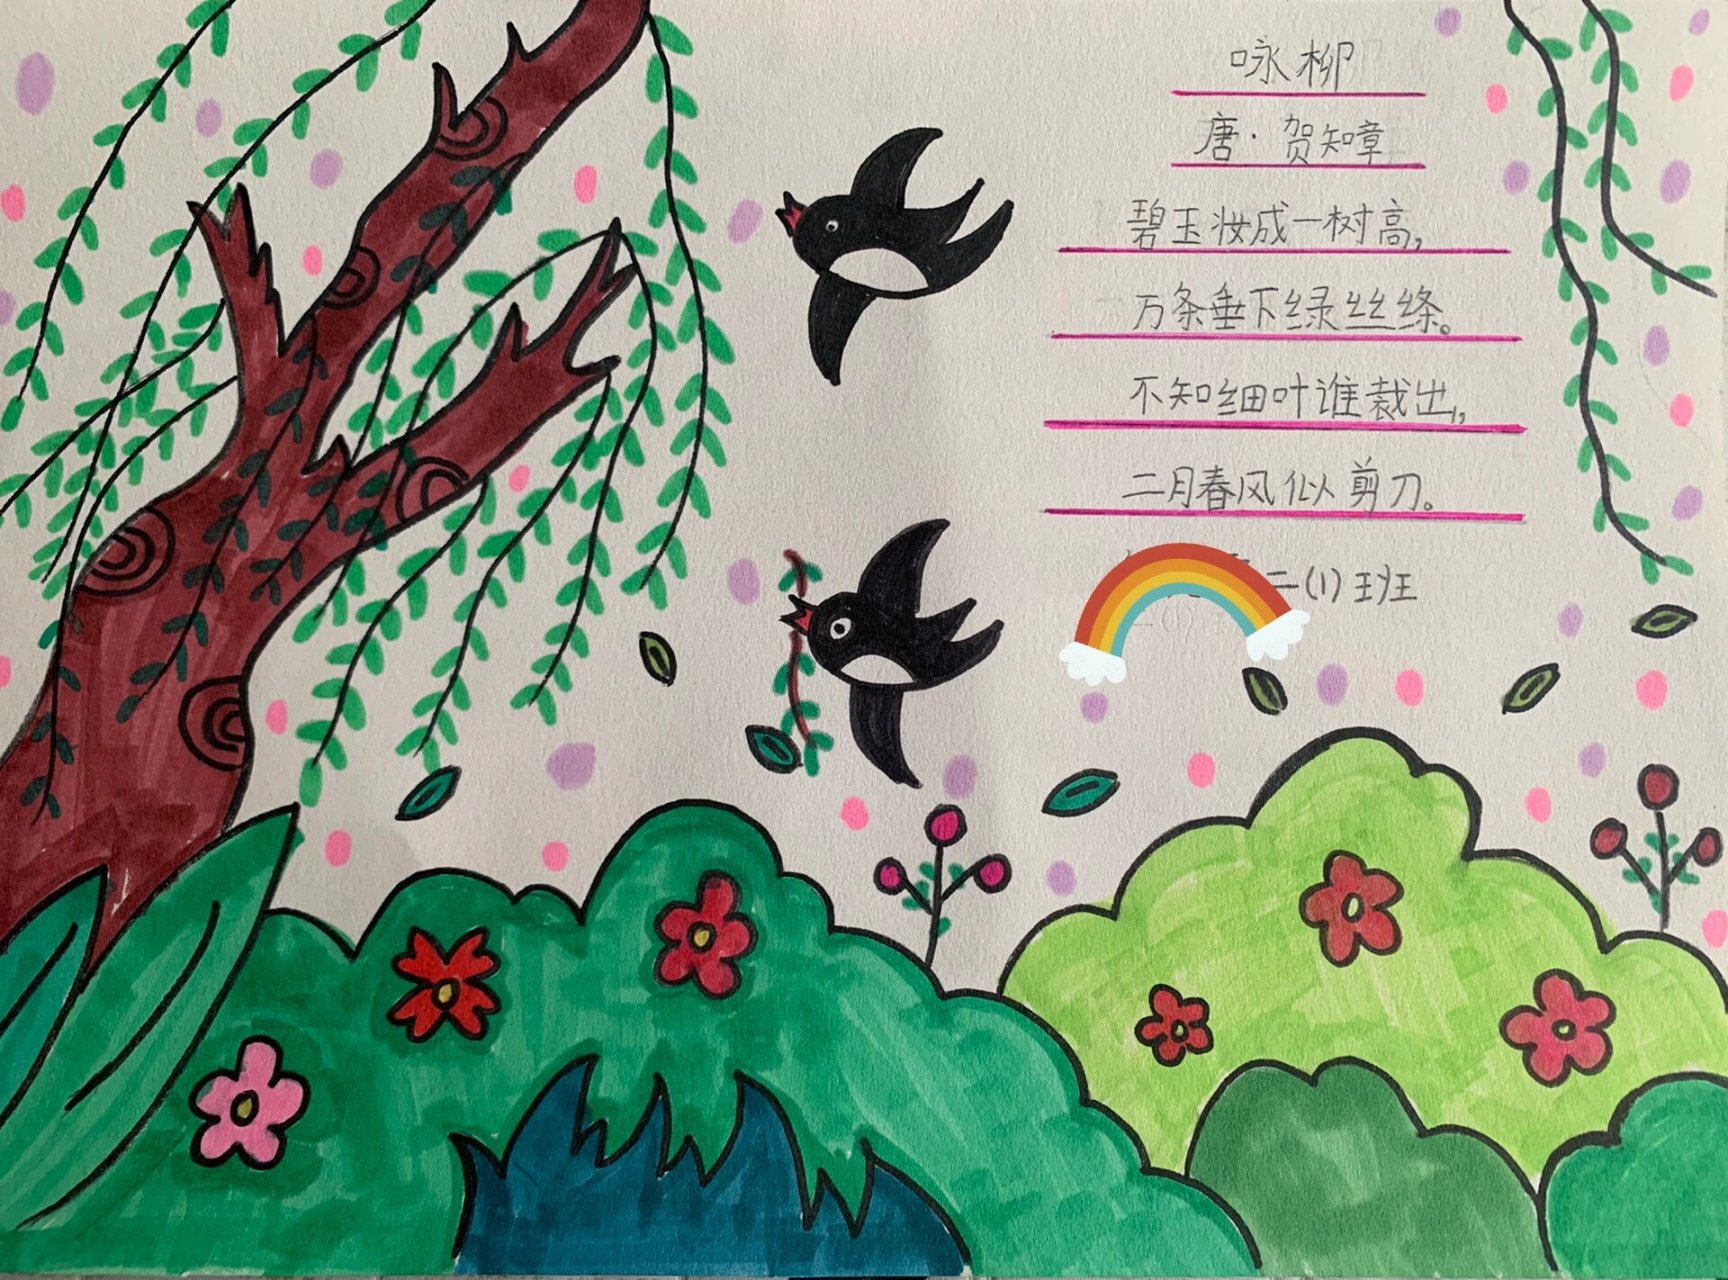 咏柳
唐·贺知章
碧玉妆成一树高，
万条垂下绿丝绦。
不知细叶谁裁出，
二月春风似剪刀。
二(1)班